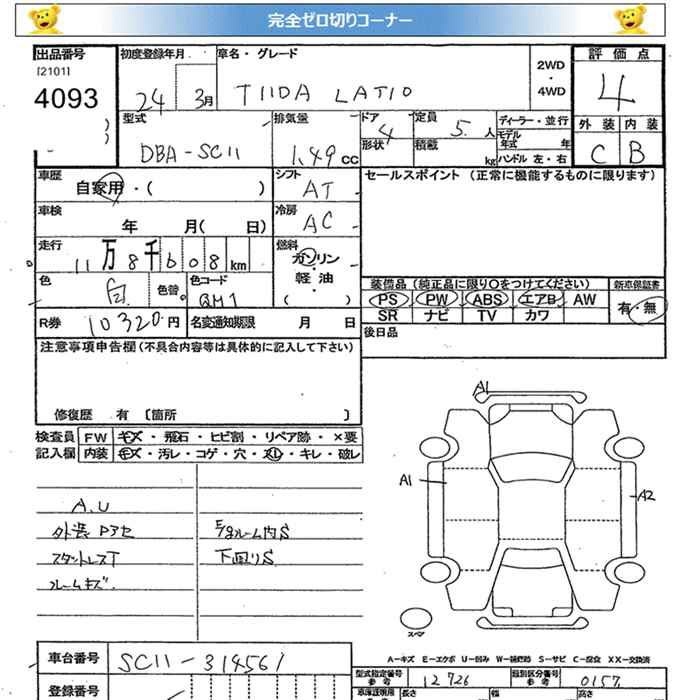 完全ゼロ切りコーナー
出品番号
[2101]
4093
初度登録年月
24 3月
車名・グレード
TIIDA LATIO
2WD
・
4WD
評価点
4
外装 内装
C B
型式
DBA-SC11
排気量
1.49 CC
ドア
4
形状
定員
5. 人
積載
kg
ディーラー・並行
モデル
年式 年
ハンドル 左・右
車歴
自家用・( )
シフト
AT
セールスポイント (正常に機能するものに限ります)
車検
年 月( 日)
冷房
AC
走行
11万8千608km
燃料
ガソリン
・
軽油
・
( )
色
白
色替
色コード
QM1
装備品 (純正品に限り○をつけてください)
PS PW ABS エアB AW
SR ナビ TV カワ
新車保証書
有・無
R券 10320円
名変通知期限 月 日
後日品
注意事項申告欄 (不具合内容等は具体的に記入して下さい)
修復歴 有 〔箇所 〕
検査員 FW キズ・飛石・ヒビ割・リペア跡・×要
記入欄 内装 キズ・汚レ・コゲ・穴・スレ・キレ・破レ
A.U
外装Pアセ
スタットレスT
フレームキズ
下回りS
A1
A1
A2
スペア
車台番号 SC11-314561
登録番号
A-キズ E-エクボ U-凹み W-補修跡 S-サビ C-腐食 XX-交換済
型式指定番号
参考
12726
類別区分番号
参考
0157
車庫証明用
長さ 幅 高さ